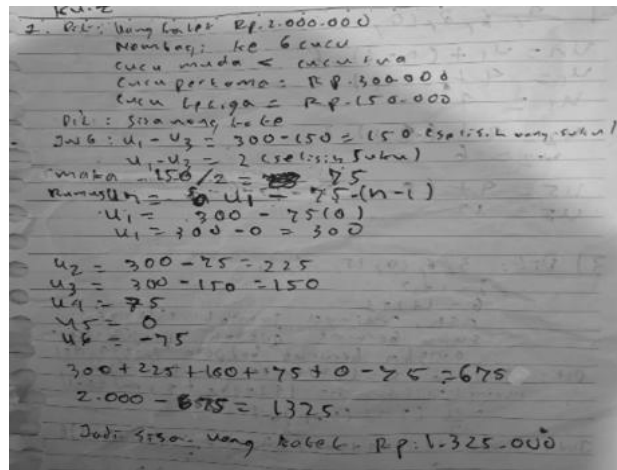 KU-2
1. Dik: Uang kakek Rp. 2.000.000
Membagi ke 6 cucu
cucu muda < cucu tua
Cucu pertama = Rp. 300.000
Cucu ketiga = Rp. 150.000
Dit : Sisa uang kakek
Jwb : U1 - U3 = 300 - 150 = 150 (selisih uang suku)
U1 - U3 = 2 (selisih suku)
maka 150/2 = 75
Rumus Un = U1 - 75 - (n-1)
U1 = 300 - 75(0)
U1 = 300 - 0 = 300
U2 = 300 - 75 = 225
U3 = 300 - 150 = 150
U4 = 75
U5 = 0
U6 = -75
300 + 225 + 150 + 75 + 0 - 75 = 675
2.000 - 675 = 1325
Jadi sisa uang kakek Rp. 1.325.000